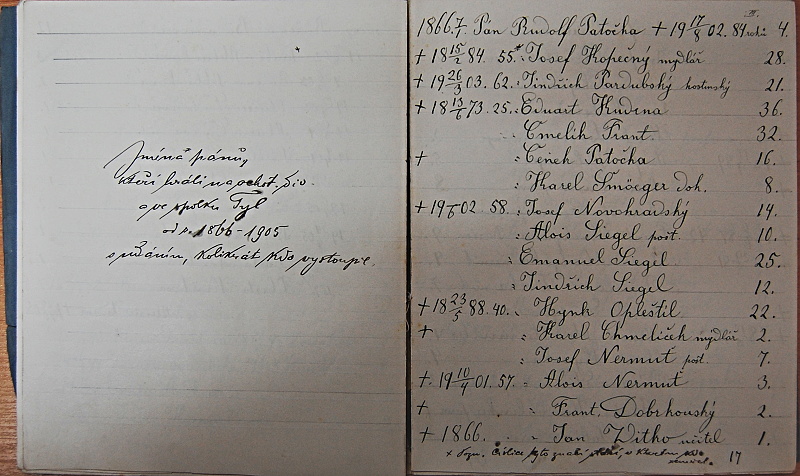 Jména pánů,
kteří hráli na ochot. div.
a ve spolku Tyl
od r. 1866-1905
s udáním, kolikrát kdo vystoupil.
II.
1866 7/1 Pán Rudolf Patočka + 19 17/8 02. 84 roků 4.
+ 18 15/2 84. 55.* : Josef Kopečný mydlář 28.
+ 19 26/3 03. 62. : Jindřich Pardubský hostinský 21.
+ 18 13/6 73. 25. : Eduart Kudrna 36.
: Cmelik Frant. 32.
+ : Čeněk Patočka 16.
: Karel doh. 8.
+ 19 02. 58. : Josef Novohradský 14.
: Alois Siegel pošt. 10.
: Emanuel Siegel 25.
: Jindřich Siegel 12.
+ 18 23/5 88. 40. : Hynk Opleštil 22.
+ : Karel Chmelíček mydlář 2.
: Josef Nermuť pošt. 7.
+ 19 10/4 01. 57. : Alois Nermuť 3.
+ : Frant. Dobrhouský 2.
+ 1866. : Jan Witho učitel 1.
Číslice tyto značí v kterém kdo zemřel. 17